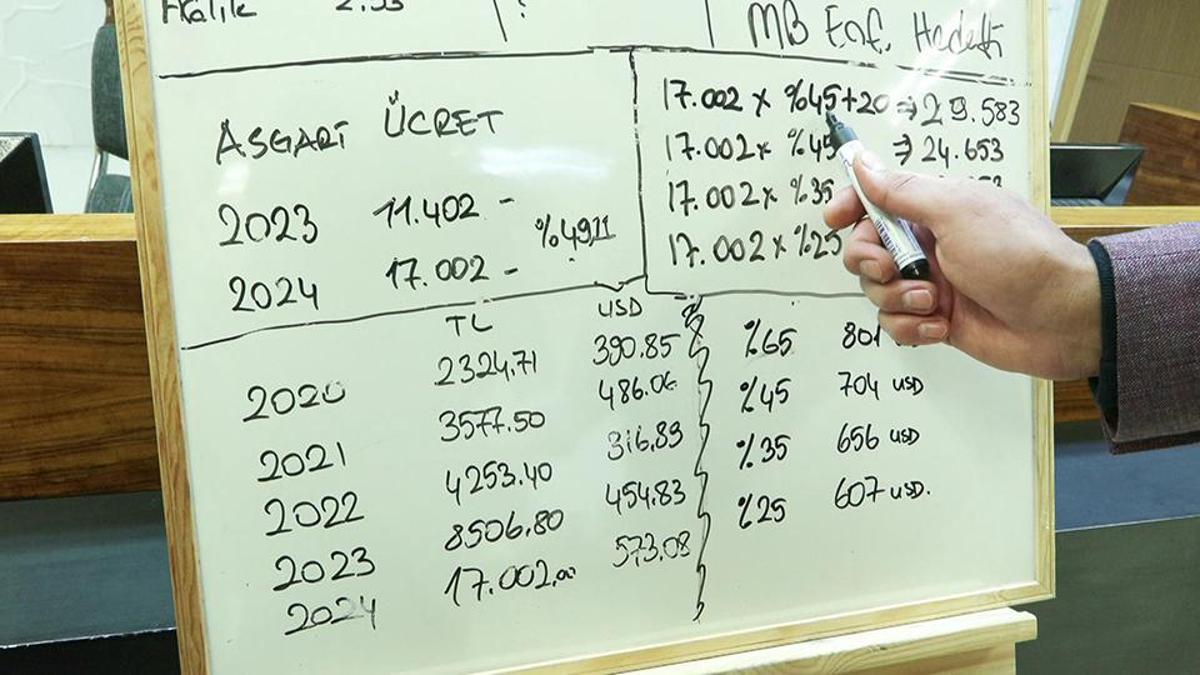 2.53
?
MB Enf. Hedefi
ASGARİ ÜCRET
2023 11.402 -
%49,11
2024 17.002 -
17.002 x %45+20 ⇒ 29.583
17.002 x %45 ⇒ 24.653
17.002 x %35
17.002 x %25
TL USD
2020 2324.71 390.85
2021 3577.50 486.06
2022 4253.40 316.83
2023 8506.80 454.83
2024 17.002.00 573.08
%65 801
%45 704 USD
%35 656 USD
%25 607 USD.